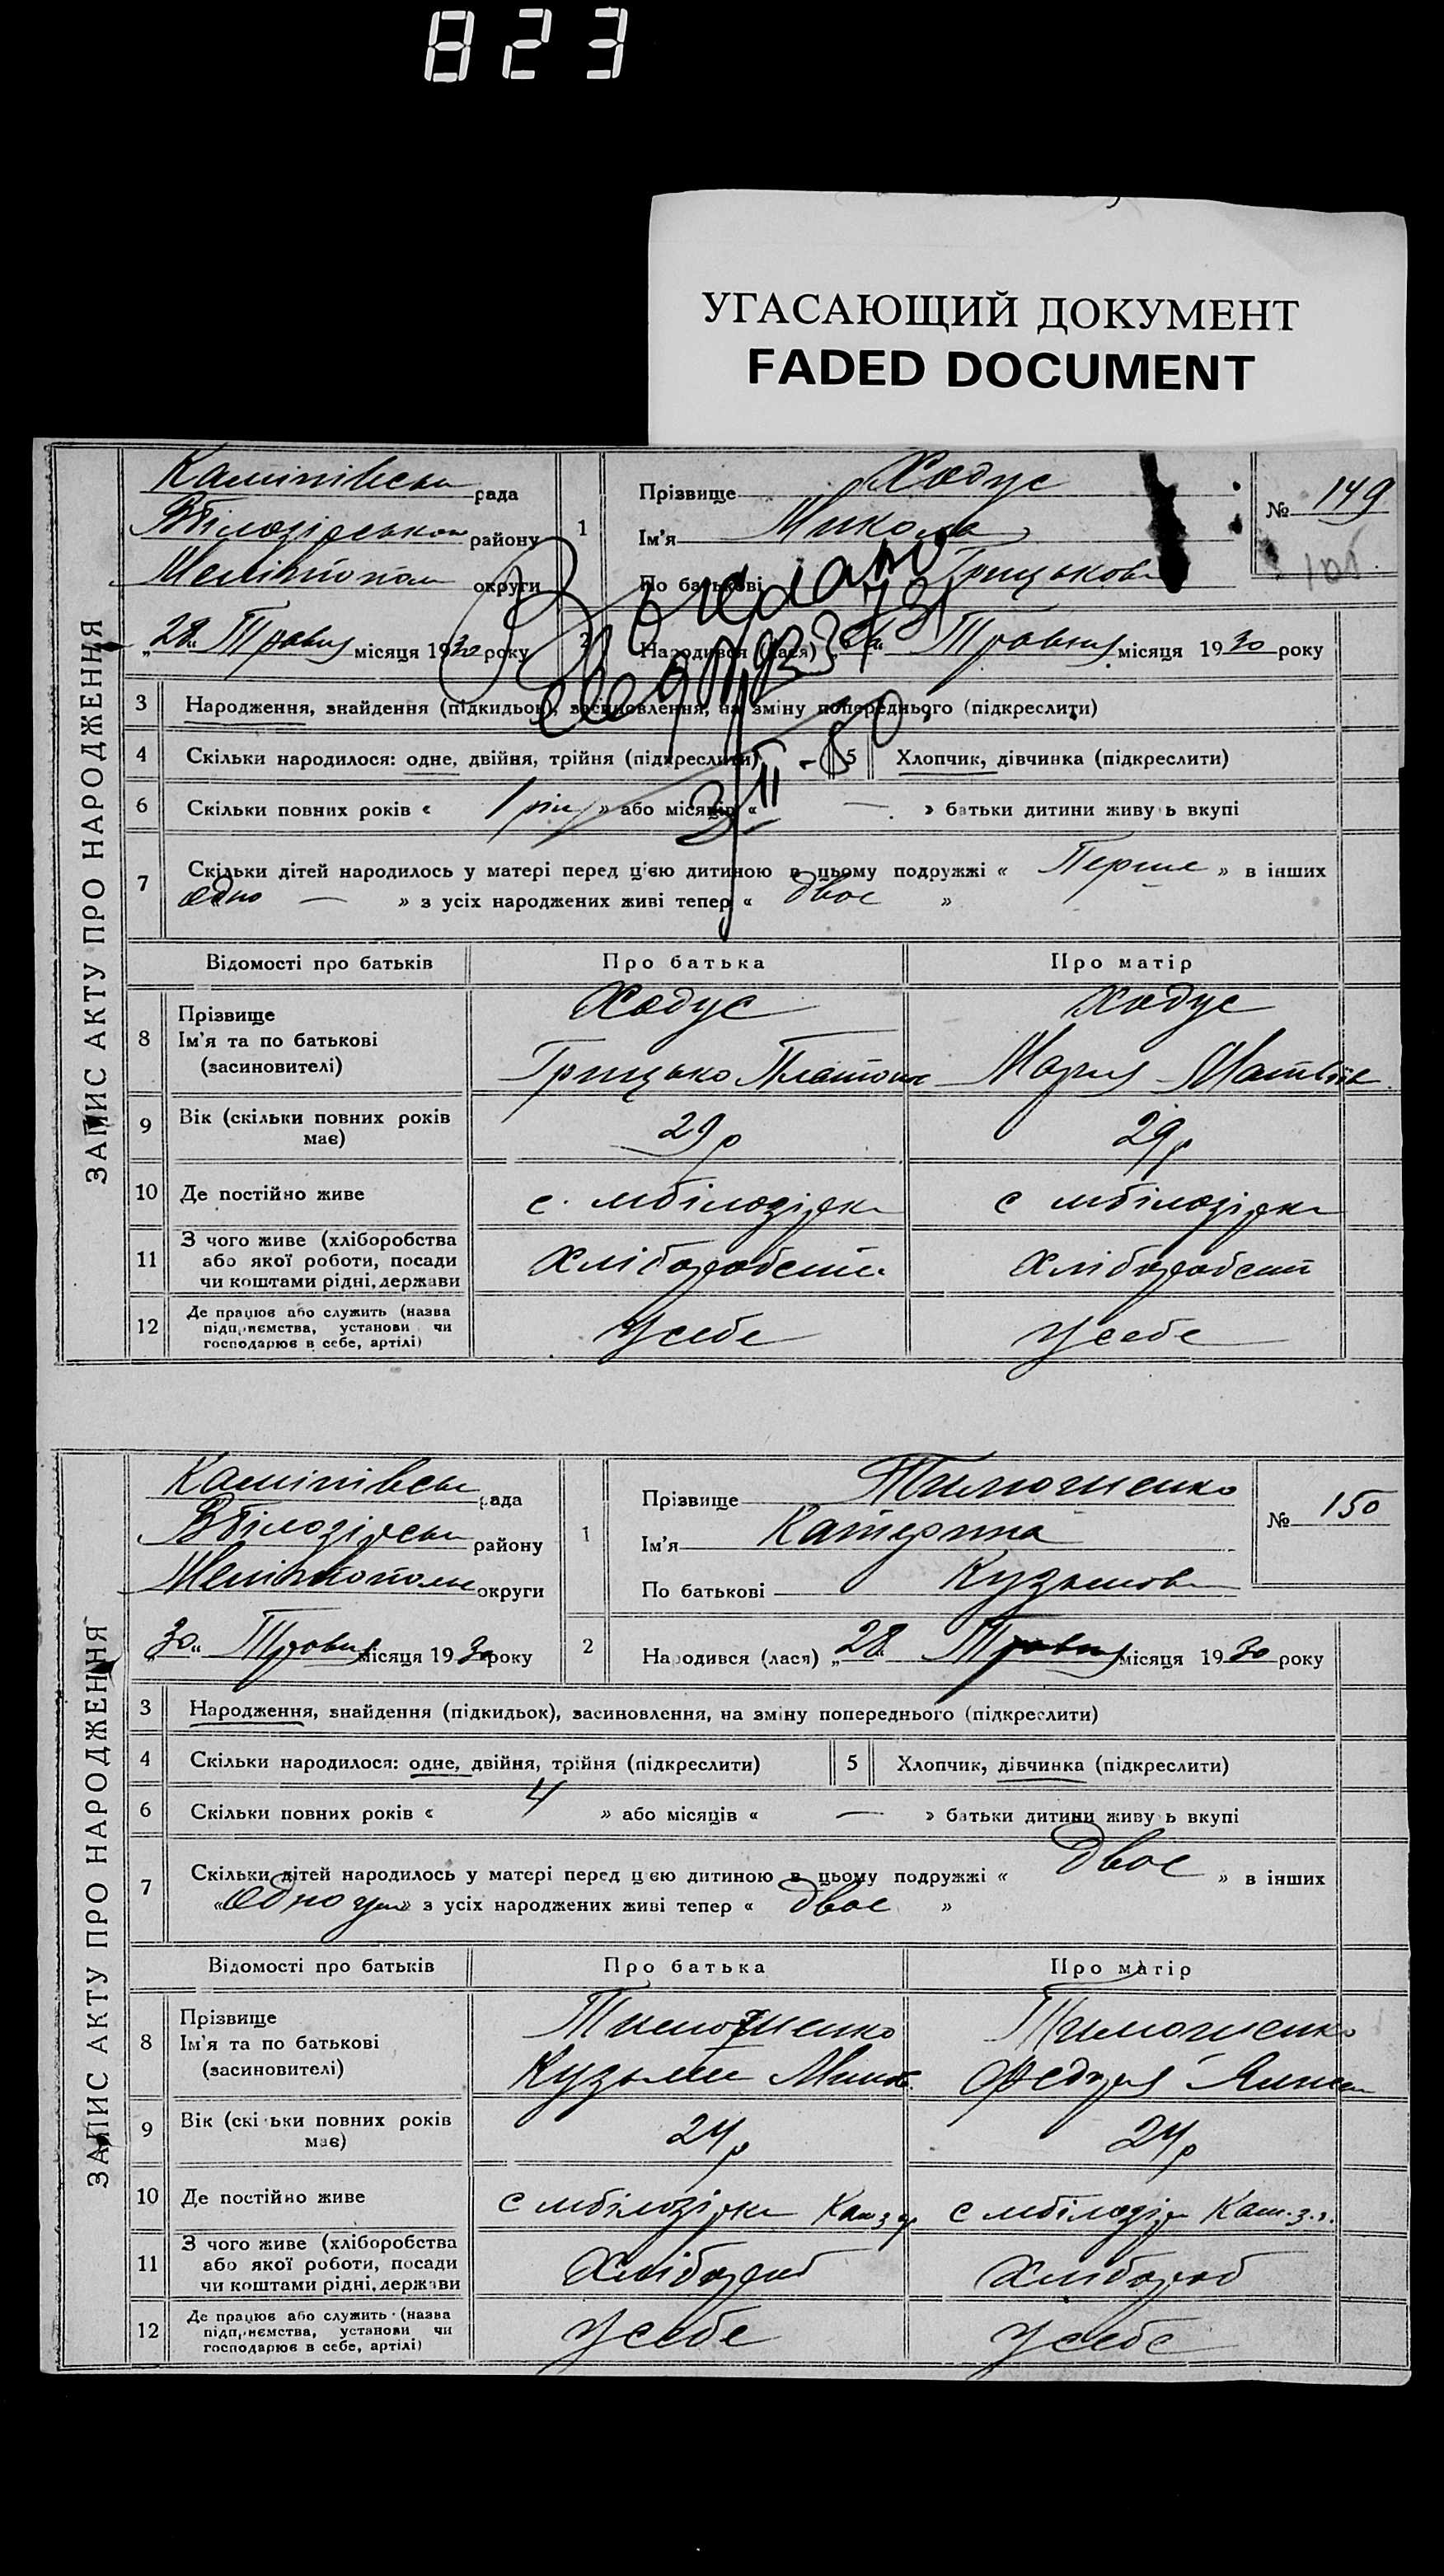 823
УГАСАЮЩИЙ ДОКУМЕНТ
FADED DOCUMENT
ЗАПИС АКТУ ПРО НАРОДЖЕННЯ
рада
району
Мелітопол округи
„28“ Травня місяця 1930 року
1
Прізвище Ходус
Ім'я Микола
По батькові Грицьков
№ 149
Видано
2 Народився (лася) Травня місяця 1930 року
3 Народження, знайдення (підкидьок), засиновлення, на зміну попереднього (підкреслити)
4 Скільки народилося: одне, двійня, трійня (підкреслити) 5 Хлопчик, дівчинка (підкреслити)
6 Скільки повних років « 1 рік » або місяців « — » батьки дитини живуть вкупі
7 Скільки дітей народилось у матері перед цією дитиною в цьому подружжі « Перше » в інших
одно — » з усіх народжених живі тепер « двоє »
Відомості про батьків Про батька Про матір
8 Прізвище Ходус Ходус
Ім'я та по батькові
(засиновителі) Грицько Платон Мария Матвіїв
9 Вік (скільки повних років має) 29 р 29 р
10 Де постійно живе с. мбілозірка с мбілозірка
11 З чого живе (хліборобства
або якої роботи, посади
чи коштами рідні, держави
Хліборобств Хліборобств
12 Де працює або служить (назва
підприємства, установи чи
господарює в себе, артілі)
У себе У себе
ЗАПИС АКТУ ПРО НАРОДЖЕННЯ
рада
району
Мелітополь округи
„30“ Травня місяця 1930 року
1
Прізвище Тимошенко
Ім'я Катерина
По батькові Кузьмов
№ 150
2 Народився (лася) „28“ Травня місяця 1930 року
3 Народження, знайдення (підкидьок), засиновлення, на зміну попереднього (підкреслити)
4 Скільки народилося: одне, двійня, трійня (підкреслити) 5 Хлопчик, дівчинка (підкреслити)
6 Скільки повних років « 4 » або місяців « — » батьки дитини живуть вкупі
7 Скільки дітей народилось у матері перед цією дитиною в цьому подружжі « двоє » в інших
« одно » з усіх народжених живі тепер « двоє »
Відомості про батьків Про батька Про матір
8 Прізвище Тимошенко Тимошенко
Ім'я та по батькові
(засиновителі) Кузьма
9 Вік (скільки повних років має) 24 р 24 р
10 Де постійно живе с мбілозірка с мбілозір
11 З чого живе (хліборобства
або якої роботи, посади
чи коштами рідні, держави
Хлібороб Хлібороб
12 Де працює або служить (назва
підприємства, установи чи
господарює в себе, артілі)
У себе У себе